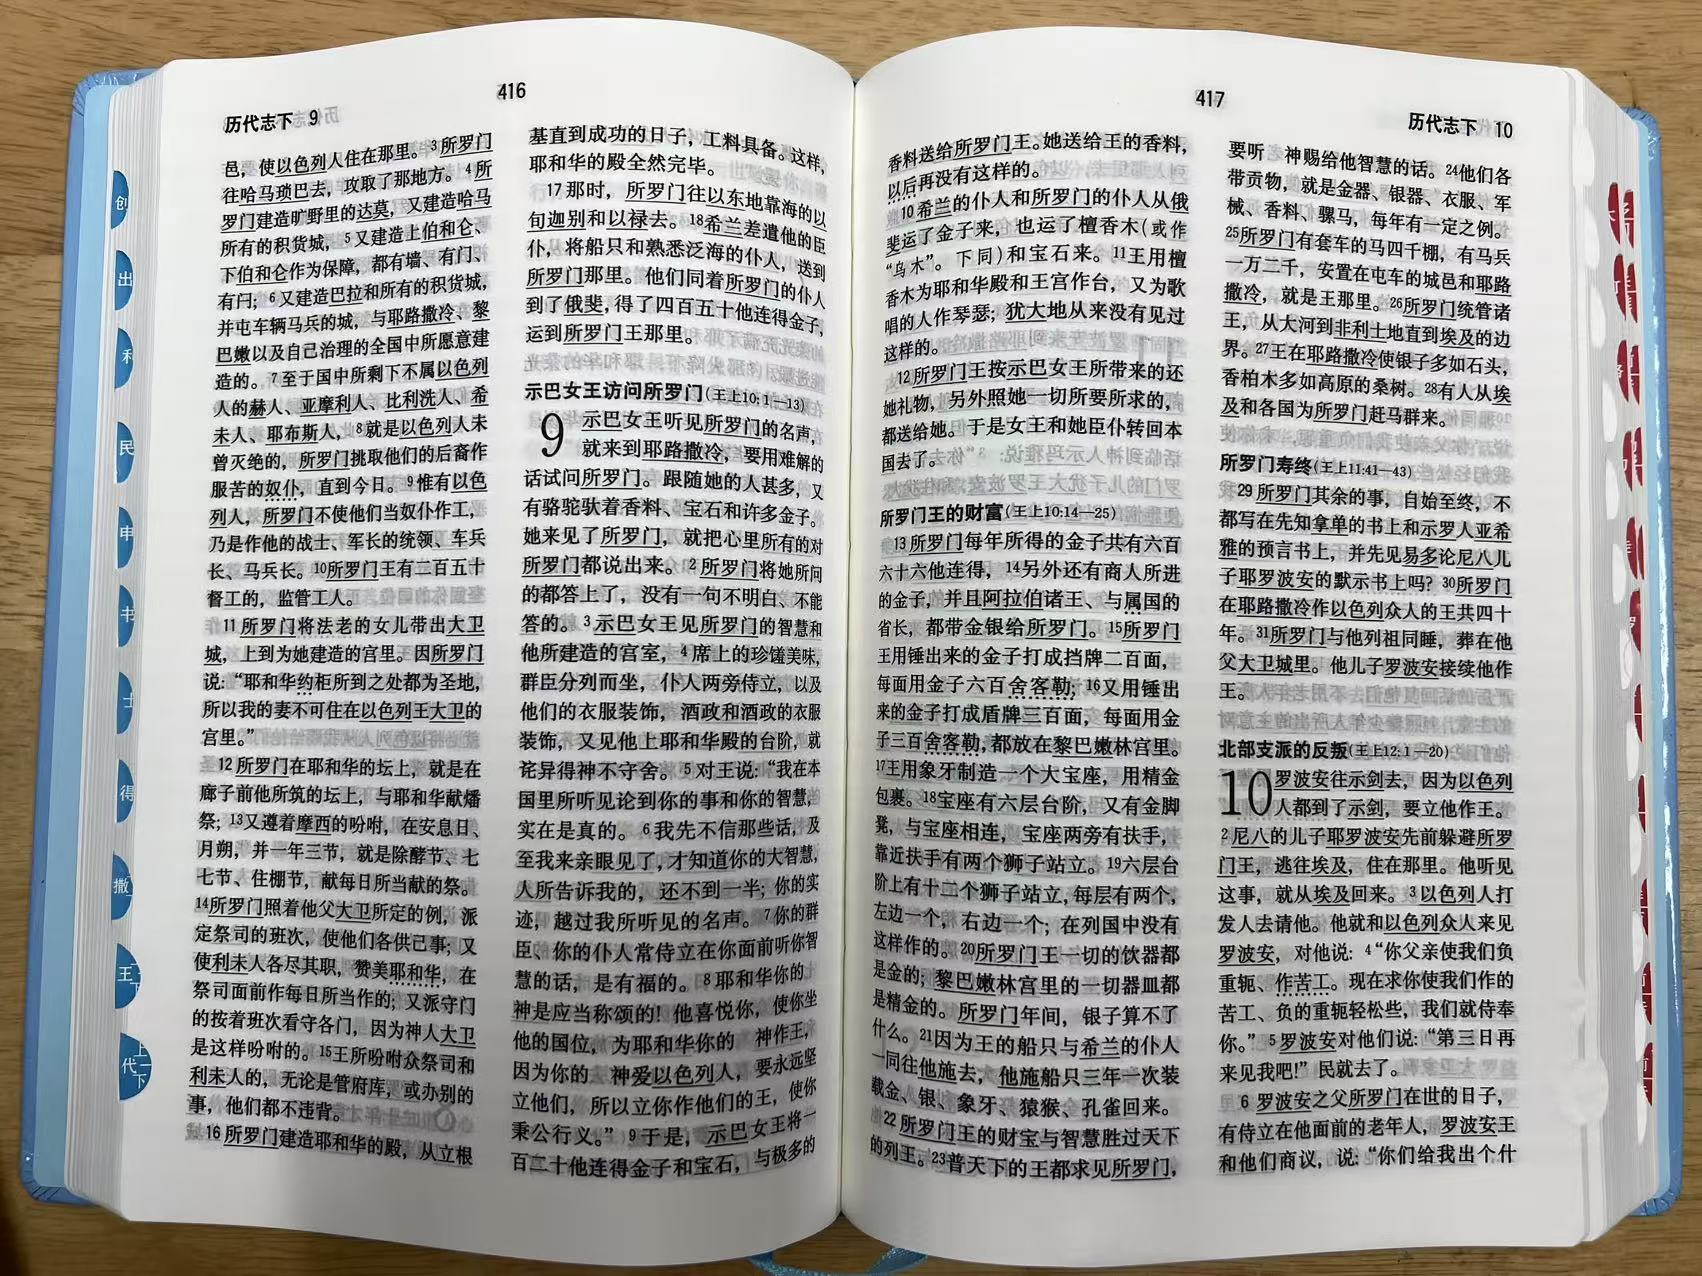 416
历代志下 9
邑，使以色列人住在那里。3所罗门
往哈马琐巴去，攻取了那地方。4所
罗门建造旷野里的达莫，又建造哈马
所有的积货城，5又建造上伯和仑、
下伯和仑作为保障，都有墙、有门、
有闩；6又建造巴拉和所有的积货城，
并屯车辆马兵的城，与耶路撒冷、黎
巴嫩以及自己治理的全国中所愿意建
造的。7至于国中所剩下不属以色列
人的赫人、亚摩利人、比利洗人、希
未人、耶布斯人，8就是以色列人未
曾灭绝的，所罗门挑取他们的后裔作
服苦的奴仆，直到今日。9惟有以色
列人，所罗门不使他们当奴仆作工，
乃是作他的战士、军长的统领、车兵
长、马兵长。10所罗门王有二百五十
督工的，监管工人。
11所罗门将法老的女儿带出大卫
城，上到为她建造的宫里。因所罗门
说：“耶和华约柜所到之处都为圣地，
所以我的妻不可住在以色列王大卫的
宫里。”
12所罗门在耶和华的坛上，就是在
廊子前他所筑的坛上，与耶和华献燔
祭；13又遵着摩西的吩咐，在安息日、
月朔，并一年三节，就是除酵节、七
七节、住棚节，献每日所当献的祭。
14所罗门照着他父大卫所定的例，派
定祭司的班次，使他们各供己事；又
使利未人各尽其职，赞美耶和华，在
祭司面前作每日所当作的；又派守门
的按着班次看守各门，因为神人大卫
是这样吩咐的。15王所吩咐众祭司和
利未人的，无论是管府库，或办别的
事，他们都不违背。
16所罗门建造耶和华的殿，从立根
基直到成功的日子，工料具备。这样，
耶和华的殿全然完毕。
17那时，所罗门往以东地靠海的以
旬迦别和以禄去。18希兰差遣他的臣
仆，将船只和熟悉泛海的仆人，送到
所罗门那里。他们同着所罗门的仆人
到了俄斐，得了四百五十他连得金子，
运到所罗门王那里。
示巴女王访问所罗门(王上10:1—13)
9 示巴女王听见所罗门的名声，
就来到耶路撒冷，要用难解的
话试问所罗门。跟随她的人甚多，又
有骆驼驮着香料、宝石和许多金子。
她来见了所罗门，就把心里所有的对
所罗门都说出来。2所罗门将她所问
的都答上了，没有一句不明白、不能
答的。3示巴女王见所罗门的智慧和
他所建造的宫室，4席上的珍馐美味，
群臣分列而坐，仆人两旁侍立，以及
他们的衣服装饰，酒政和酒政的衣服
装饰，又见他上耶和华殿的台阶，就
诧异得神不守舍。5对王说：“我在本
国里所听见论到你的事和你的智慧，
实在是真的。6我先不信那些话，及
至我来亲眼见了，才知道你的大智慧，
人所告诉我的，还不到一半；你的实
迹，越过我所听见的名声。7你的群
臣、你的仆人常侍立在你面前听你智
慧的话，是有福的。8耶和华你的
神是应当称颂的！他喜悦你，使你坐
他的国位，为耶和华你的 神作王，
因为你的 神爱以色列人，要永远坚
立他们，所以立你作他们的王，使你
秉公行义。”9于是，示巴女王将一
百二十他连得金子和宝石，与极多的
417
历代志下 10
香料送给所罗门王。她送给王的香料，
以后再没有这样的。
10希兰的仆人和所罗门的仆人从俄
斐运了金子来，也运了檀香木(或作
“乌木”。下同)和宝石来。11王用檀
香木为耶和华殿和王宫作台，又为歌
唱的人作琴瑟；犹大地从来没有见过
这样的。
12所罗门王按示巴女王所带来的还
她礼物，另外照她一切所要所求的，
都送给她。于是女王和她臣仆转回本
国去了。
所罗门王的财富(王上10:14—25)
13所罗门每年所得的金子共有六百
六十六他连得，14另外还有商人所进
的金子，并且阿拉伯诸王、与属国的
省长，都带金银给所罗门。15所罗门
王用锤出来的金子打成挡牌二百面，
每面用金子六百舍客勒；16又用锤出
来的金子打成盾牌三百面，每面用金
子三百舍客勒，都放在黎巴嫩林宫里。
17王用象牙制造一个大宝座，用精金
包裹。18宝座有六层台阶，又有金脚
凳，与宝座相连，宝座两旁有扶手，
靠近扶手有两个狮子站立。19六层台
阶上有十二个狮子站立，每层有两个，
左边一个，右边一个；在列国中没有
这样作的。20所罗门王一切的饮器都
是金的；黎巴嫩林宫里的一切器皿都
是精金的。所罗门年间，银子算不了
什么。21因为王的船只与希兰的仆人
一同往他施去，他施船只三年一次装
载金、银、象牙、猿猴、孔雀回来。
22所罗门王的财宝与智慧胜过天下
的列王。23普天下的王都求见所罗门，
要听 神赐给他智慧的话。24他们各
带贡物，就是金器、银器、衣服、军
械、香料、骡马，每年有一定之例。
25所罗门有套车的马四千棚，有马兵
一万二千，安置在屯车的城邑和耶路
撒冷，就是王那里。26所罗门统管诸
王，从大河到非利士地直到埃及的边
界。27王在耶路撒冷使银子多如石头，
香柏木多如高原的桑树。28有人从埃
及和各国为所罗门赶马群来。
所罗门寿终(王上11:41—43)
29所罗门其余的事，自始至终，不
都写在先知拿单的书上和示罗人亚希
雅的预言书上，并先见易多论尼八儿
子耶罗波安的默示书上吗？30所罗门
在耶路撒冷作以色列众人的王共四十
年。31所罗门与他列祖同睡，葬在他
父大卫城里。他儿子罗波安接续他作
王。
北部支派的反叛(王上12:1—20)
10 罗波安往示剑去，因为以色列
人都到了示剑，要立他作王。
2尼八的儿子耶罗波安先前躲避所罗
门王，逃往埃及，住在那里。他听见
这事，就从埃及回来。3以色列人打
发人去请他。他就和以色列众人来见
罗波安，对他说：4“你父亲使我们负
重轭、作苦工。现在求你使我们作的
苦工、负的重轭轻松些，我们就侍奉
你。”5罗波安对他们说：“第三日再
来见我吧！”民就去了。
6罗波安之父所罗门在世的日子，
有侍立在他面前的老年人，罗波安王
和他们商议，说：“你们给我出个什
创
出
利
民
申
书
士
得
撒
王 下
代 上一下